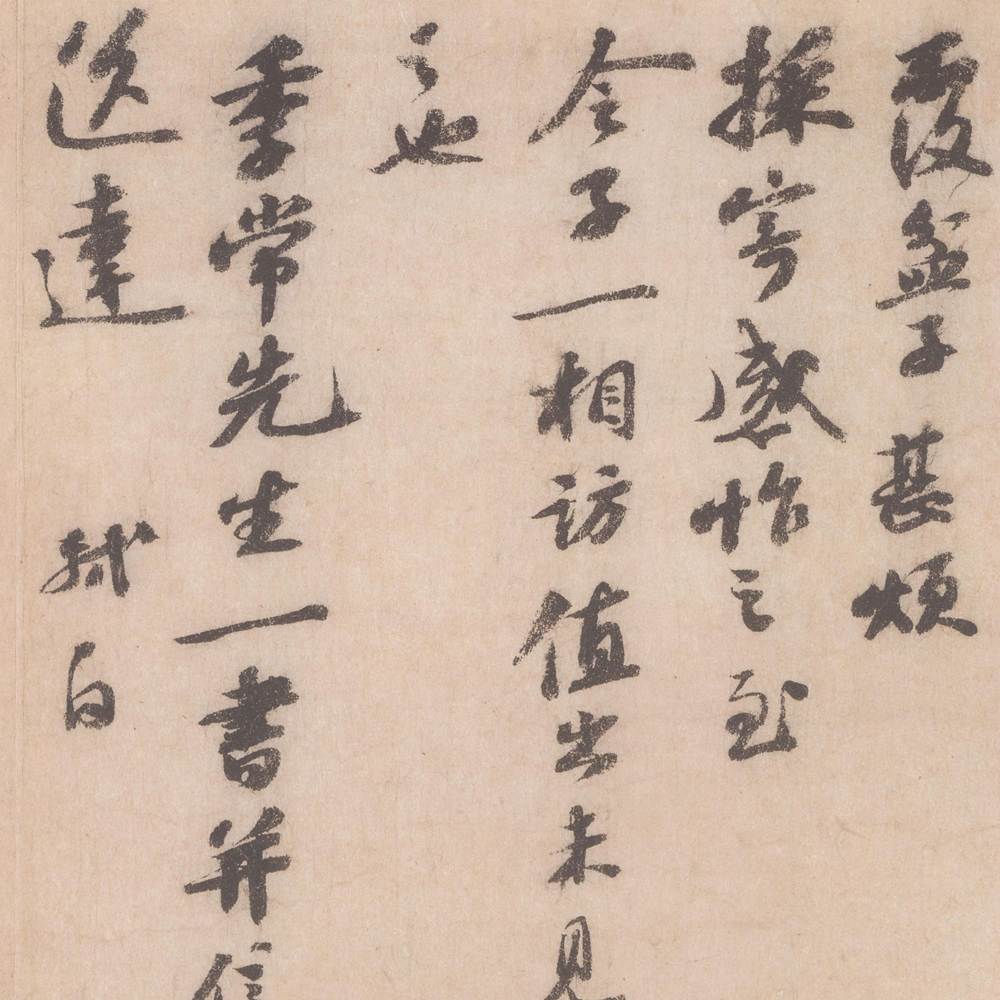 覆盆子甚烦
採寄感怍之至
令子一相訪值出未見
之也
季常先生一書并信
送達 軾白